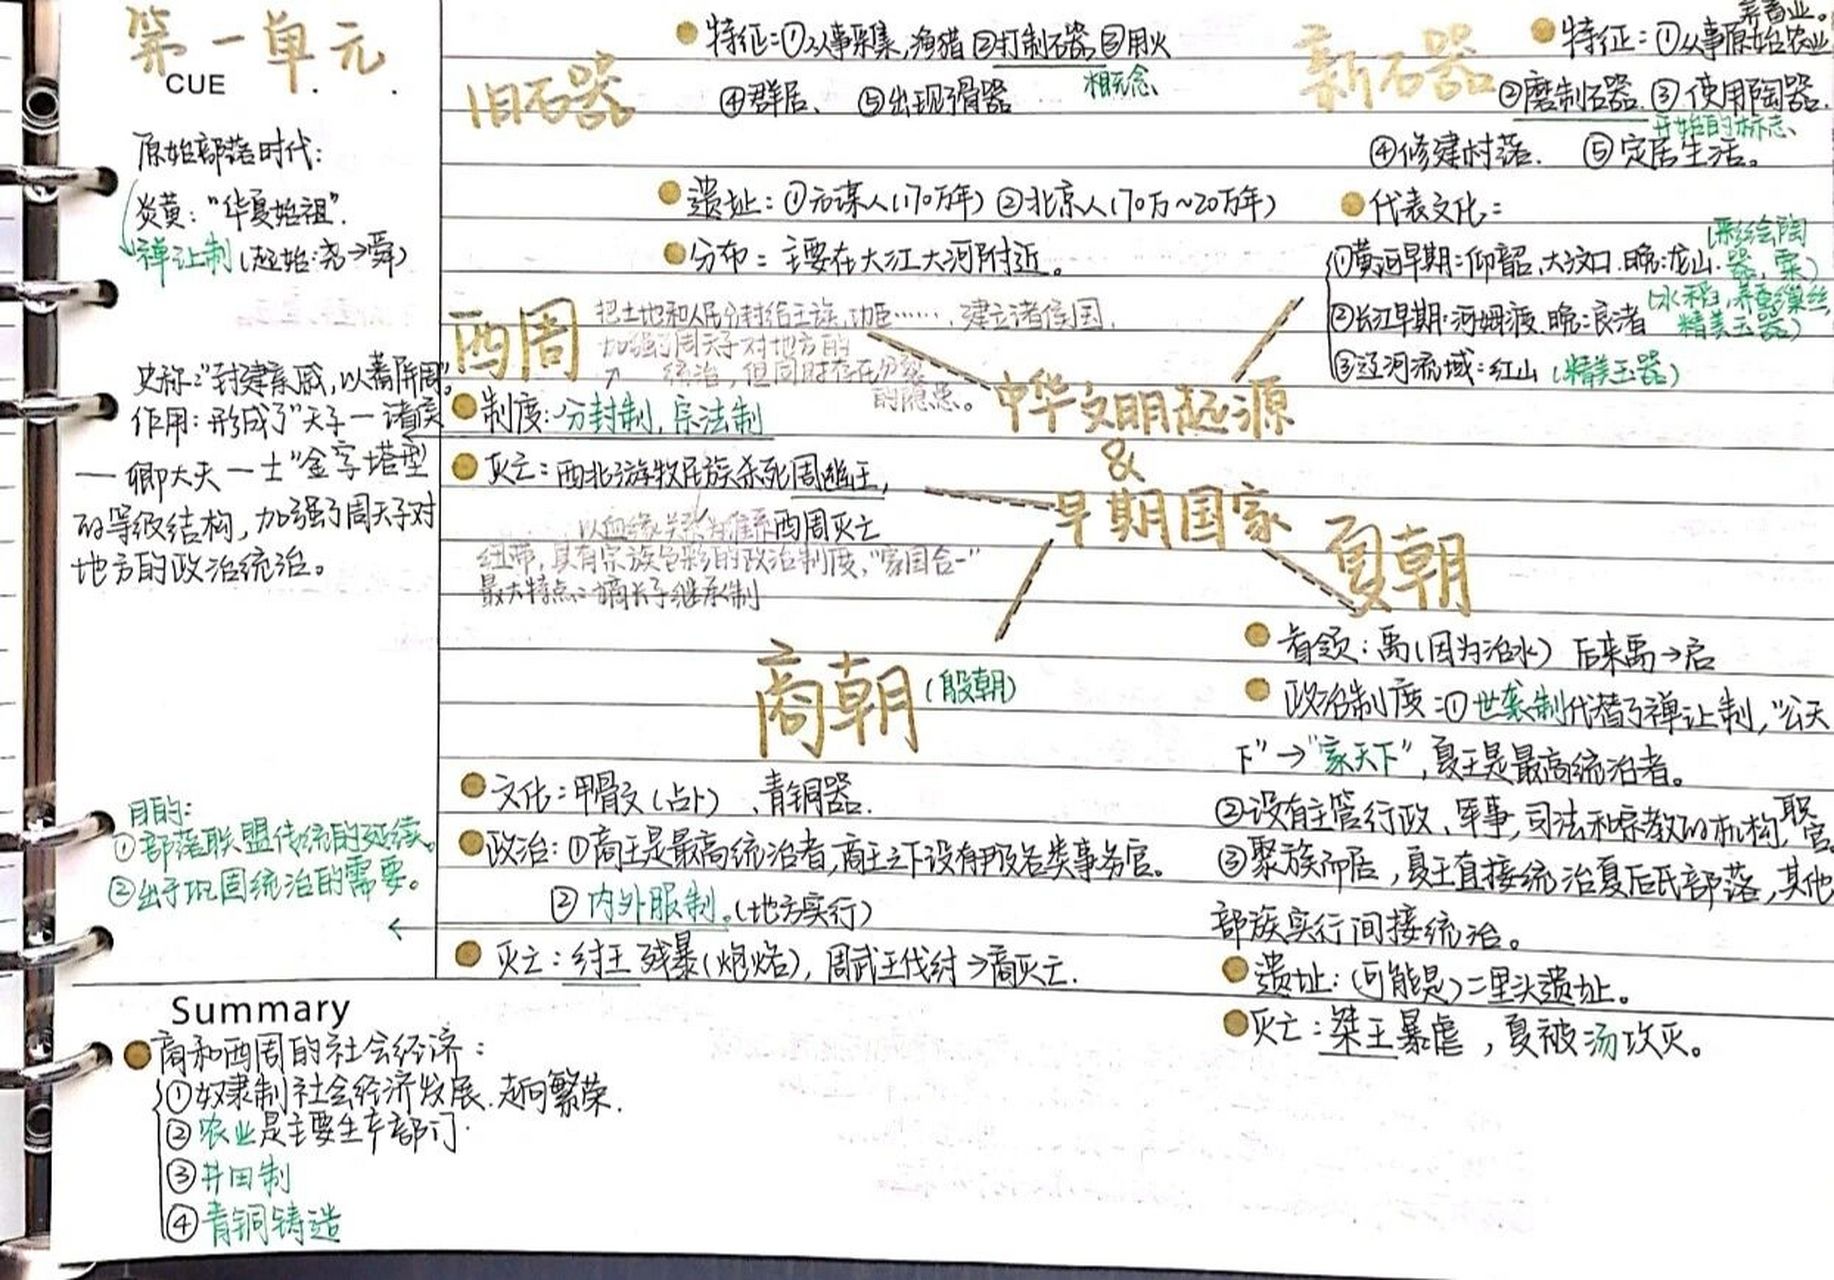 第一单元
CUE
原始部落时代:
炎黄:“华夏始祖”.
禅让制(起始:尧→舜)
史称:“封建亲戚,以蕃屏周”。
作用:形成了“天子一诸侯
一卿大夫一士”金字塔型
的等级结构,加强了周天子对
地方的政治统治。
目的:
①部落联盟传统的延续。
②出于巩固统治的需要。
旧石器
特征:①从事采集,渔猎②打制石器③用火
相对概念
④群居、⑤出现骨器
遗址:①元谋人(170万年)②北京人(70万~20万年)
分布:主要在大江大河附近。
新石器
养畜业。
特征:①从事原始农业
②磨制石器.③使用陶器.
开始的标志、
④修建村落.⑤定居生活。
代表文化:
①黄河早期:仰韶、大汶口.晚:龙山.(彩绘陶
器,粟)
②长江早期:河姆渡.晚:良渚(水稻,养蚕缫丝
精美玉器)
③辽河流域:红山(精美玉器)
西周
把土地和人民分封给王族,功臣……,建立诸侯国,
加强了周天子对地方的
统治,但同时存在分裂
的隐患。
制度:分封制,宗法制
灭亡:西北游牧民族杀死周幽王,
西周灭亡
以血缘关系为维系
纽带,具有宗族色彩的政治制度,“家国合一”
最大特点:嫡长子继承制
中华文明起源
&
早期国家
夏朝
首领:禹(因为治水) 后来禹→启
政治制度:①世袭制代替了禅让制,“公天
下”→“家天下”,夏王是最高统治者。
②设有主管行政、军事,司法和宗教的机构,职
官。
③聚族而居,夏王直接统治夏后氏部落,其他
部族实行间接统治。
遗址:(可能是)二里头遗址。
灭亡:桀王暴虐,夏被汤攻灭。
商朝(殷朝)
文化:甲骨文(占卜)、青铜器.
政治:①商王是最高统治者,商王之下设有尹及各类事务官。
②内外服制。(地方实行)
灭亡:纣王残暴(炮烙),周武王伐纣→商灭亡.
Summary
商和西周的社会经济:
①奴隶制社会经济发展.走向繁荣.
②农业是主要生产部门.
③井田制
④青铜铸造